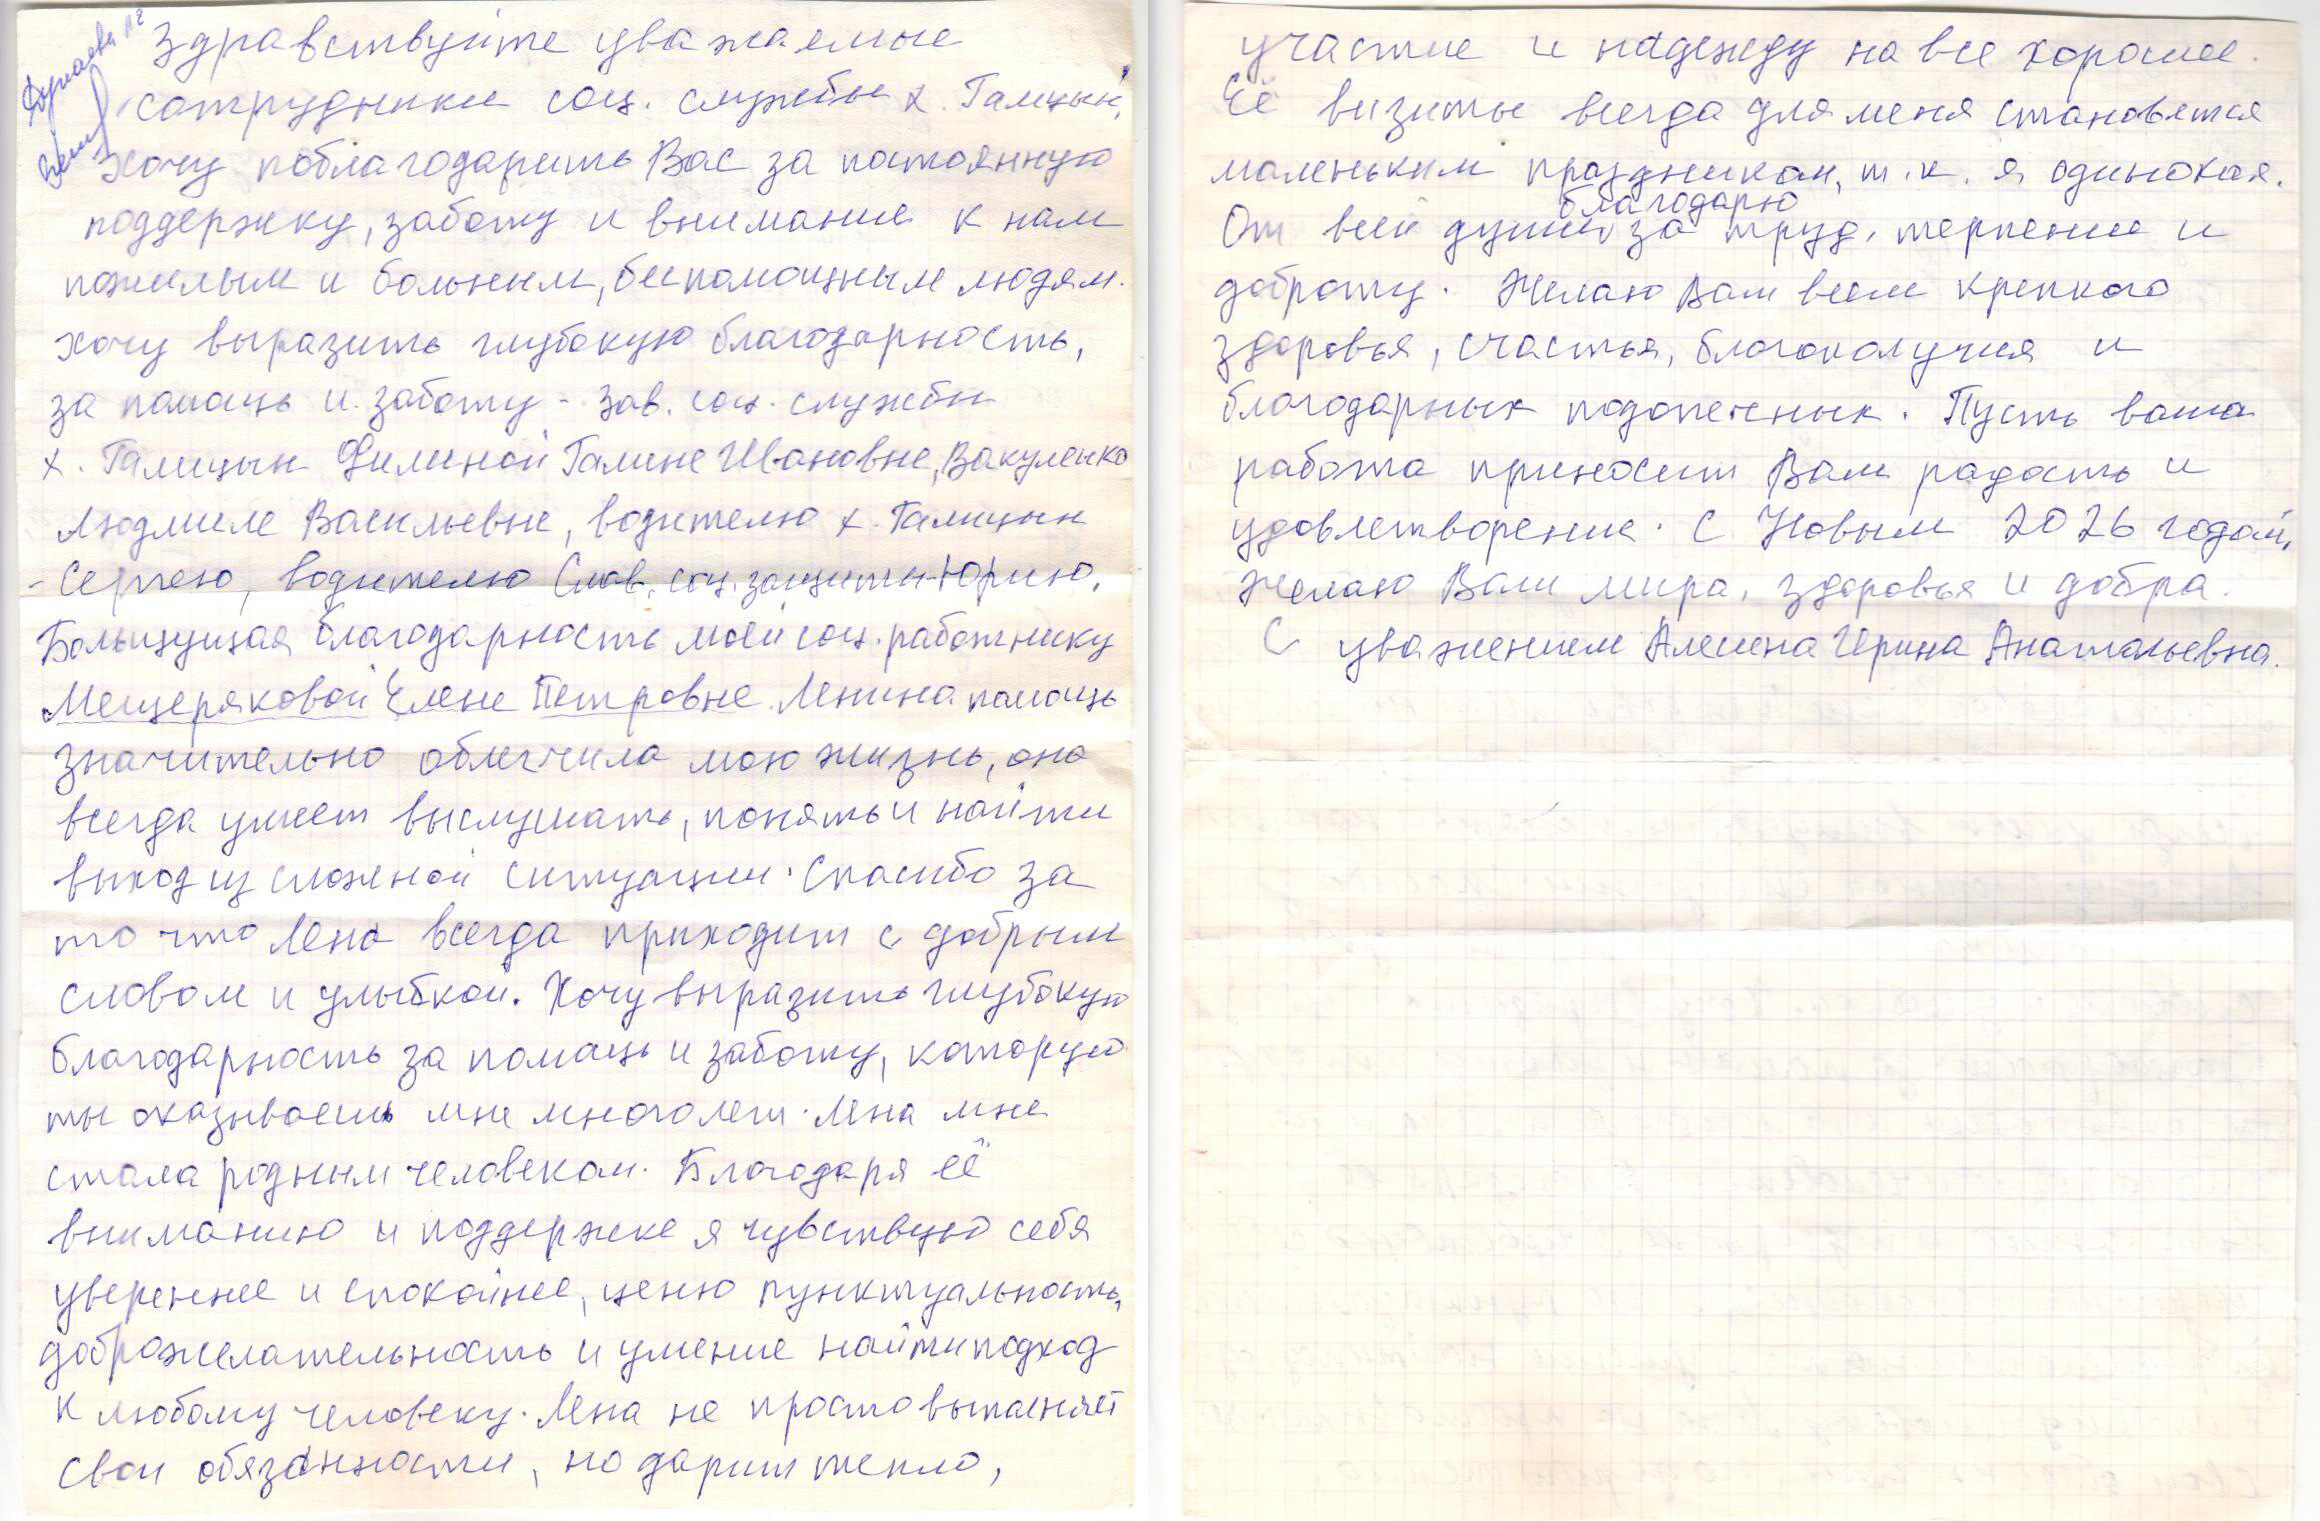 Здравствуйте уважаемые
сотрудники соц. службы х. Галицын,
Хочу поблагодарить Вас за постоянную
поддержку, заботу и внимание к нам
пожилым и больным, беспомощным людям.
Хочу выразить глубокую благодарность,
за помощь и заботу - зав. соц. службы
х. Галицын Филиной Галине Ивановне, Вакуленко
Людмиле Васильевне, водителю х. Галицын
- Сергею, водителю Слав. соц. защиты-Юрию.
Большущая благодарность моей соц. работнику
Мещеряковой Елене Петровне. Ленина помощь
значительно облегчила мою жизнь, она
всегда умеет выслушать, понять и найти
выход из сложной ситуации. Спасибо за
то что Лена всегда приходит с добрым
словом и улыбкой. Хочу выразить глубокую
благодарность за помощь и заботу, которую
ты оказываешь мне много лет. Лена мне
стала родным человеком. Благодаря её
вниманию и поддержке я чувствую себя
увереннее и спокойнее, ценю пунктуальность,
доброжелательность и умение найти подход
к любому человеку. Лена не просто выполняет
свои обязанности, но дарит тепло,
участие и надежду на все хорошее.
Её визиты всегда для меня становятся
маленьким праздником, т.к. я одинокая.
От всей души благодарю за труд, терпение и
доброту. Желаю Вам всем крепкого
здоровья, счастья, благополучия и
благодарных подопечных. Пусть ваша
работа приносит Вам радость и
удовлетворение. С Новым 2026 годом,
Желаю Вам мира, здоровья и добра.
С уважением Алешина Ирина Анатольевна.